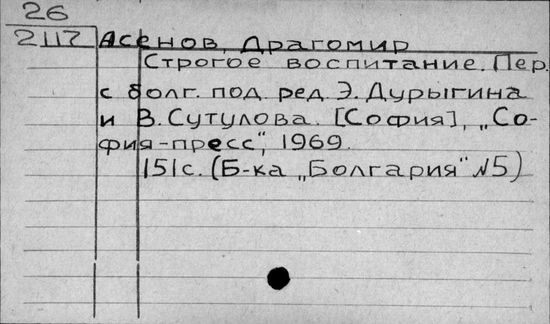 26
2117 Асенов, Драгомир
Строгое воспитание. Пер.
с болг. под. ред. Э. Дурыгина
и В. Сутулова. [София], „Со-
фия-пресс“, 1969.
151с. (Б-ка „Болгария“ №5)